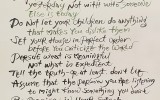 yesterday, Not with who someone
Else is today
Do Not let your children do anything
that makes you dislike them
Set your house in perfect order
before you criticize the world
Pursue what is meaningful
Not what is expedient
Tell the truth - or at least don't lie
Assume that the person you are listening
to might know something you don't